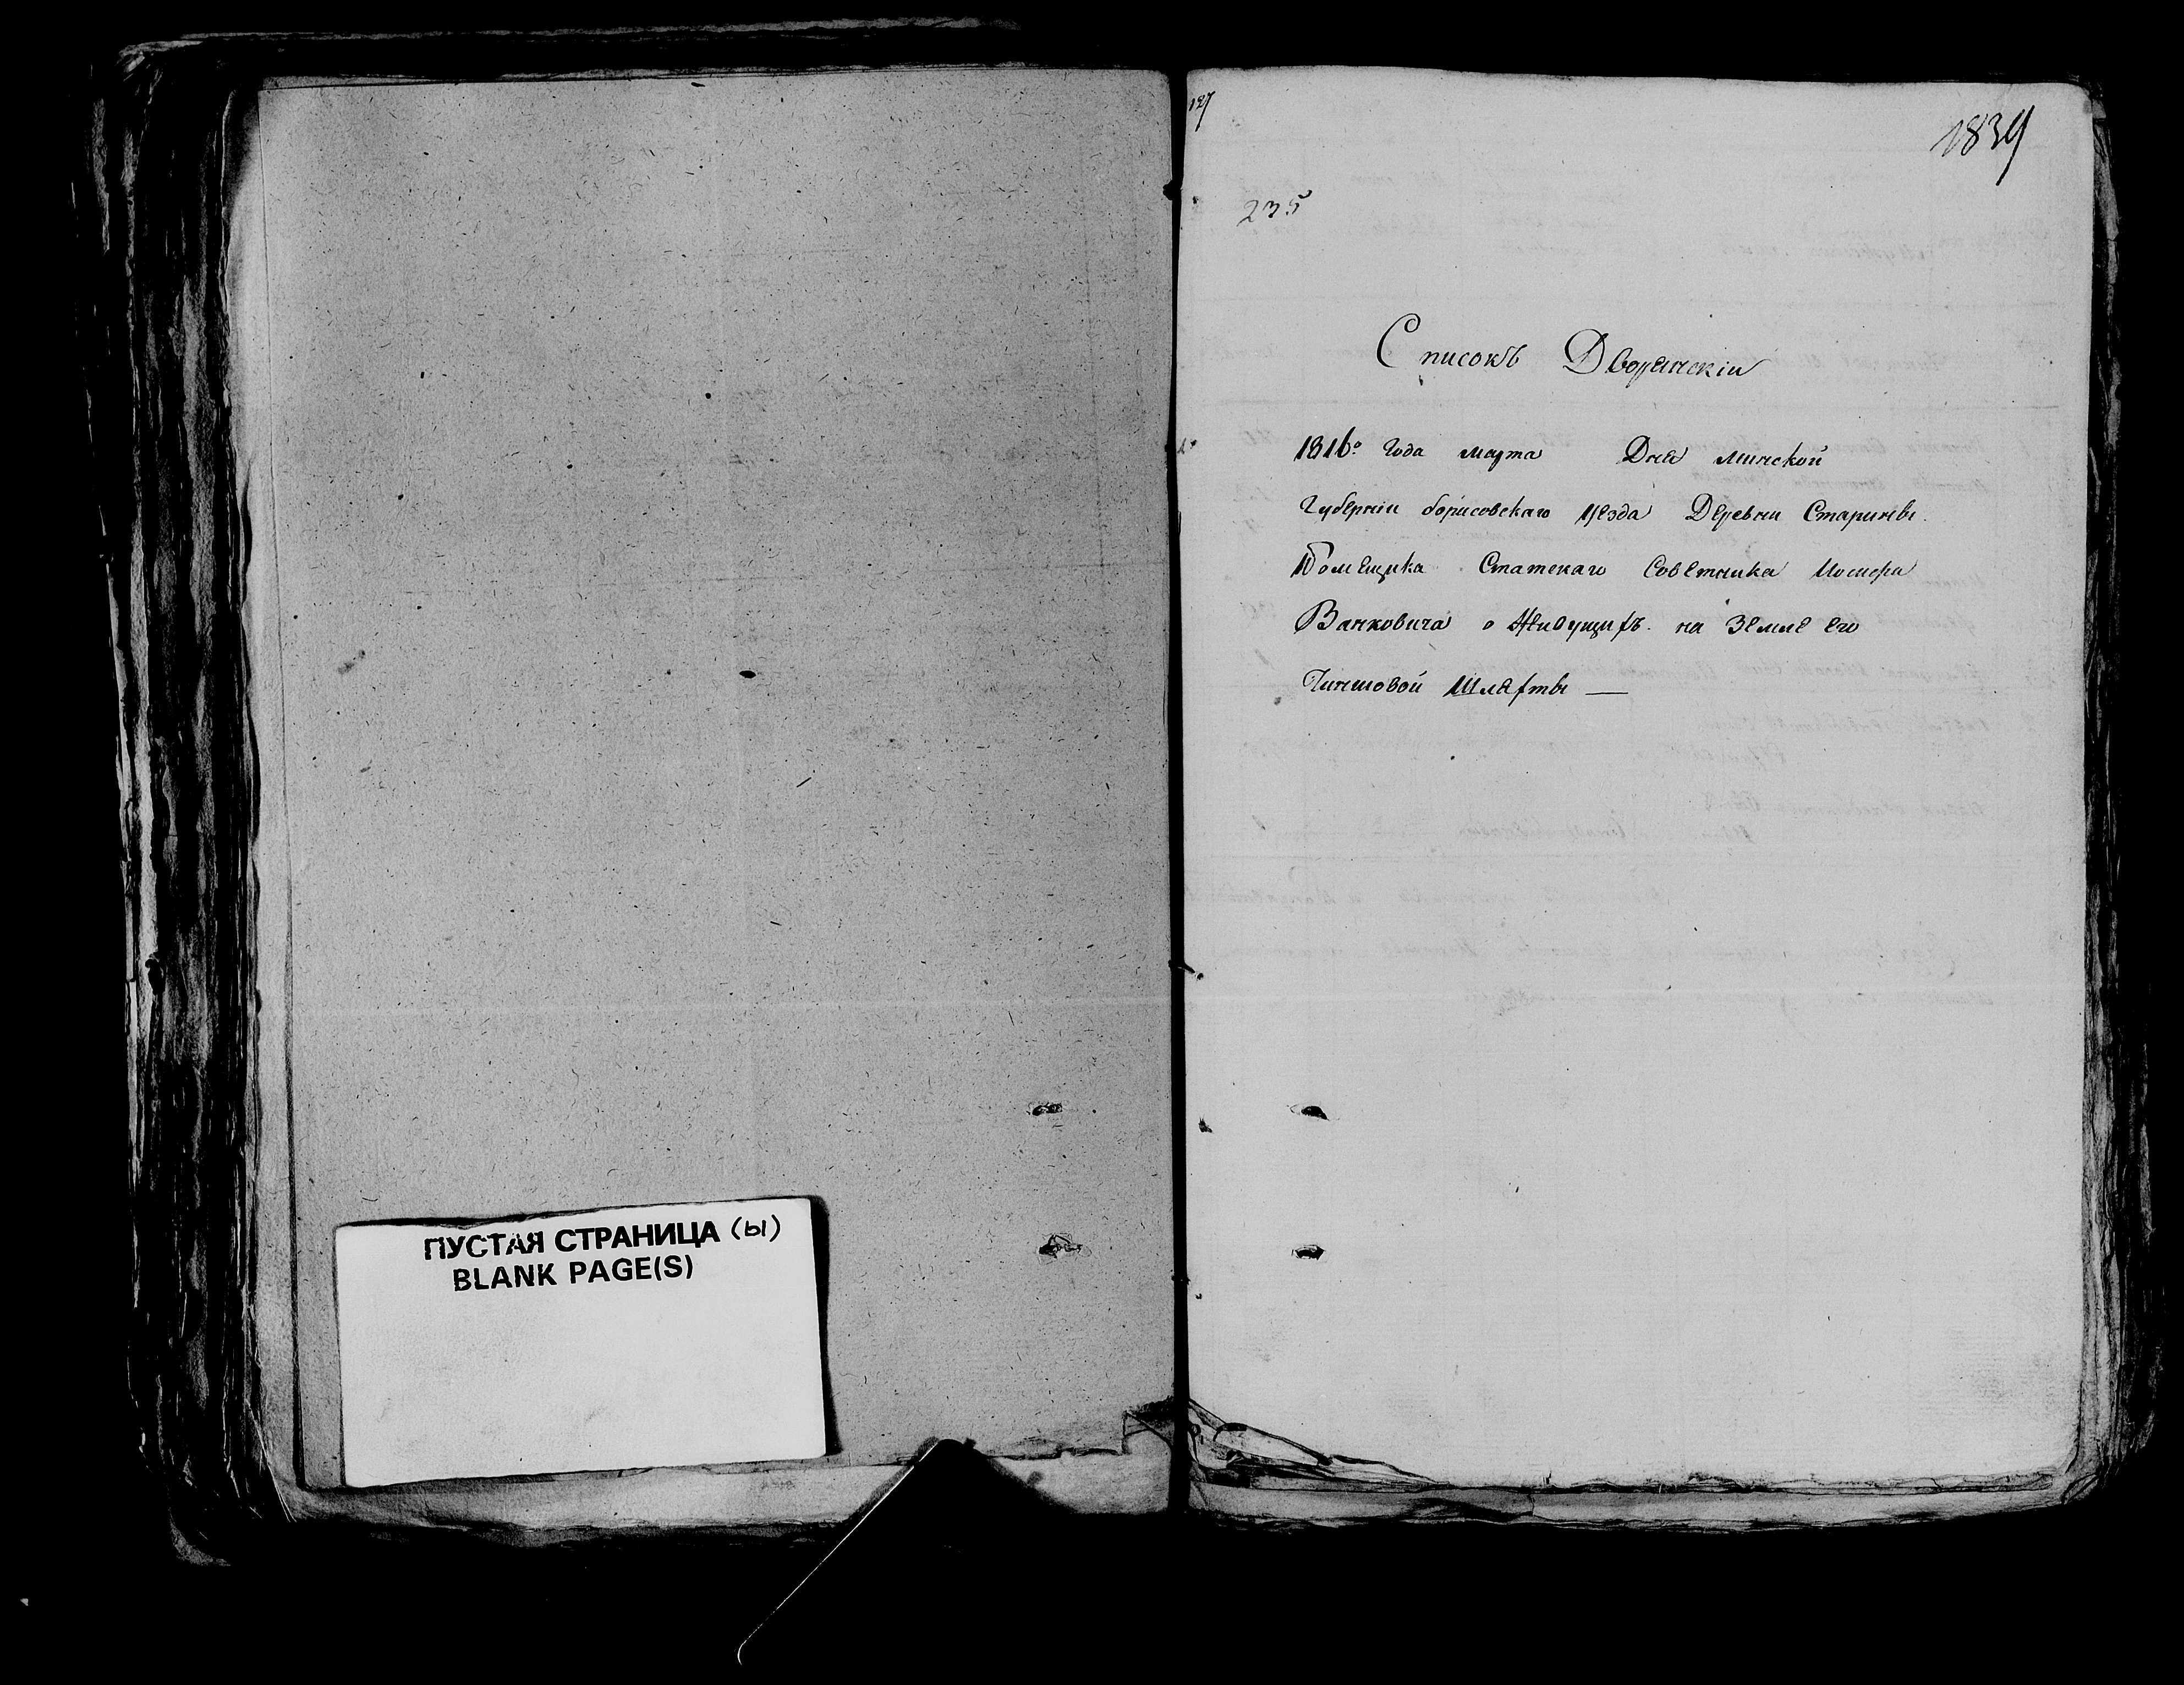 ПУСТАЯ СТРАНИЦА (ы)
BLANK PAGE(S)
1839
235
Списокъ Дворянскіи
1816º года марта Дня минской
Губерніи борисовскаго уезда Деревни Старины.
Помещика Статскаго Советника Иосифа
Ванковича о Живущихъ на Земле его
Чиншовой Шляхты —